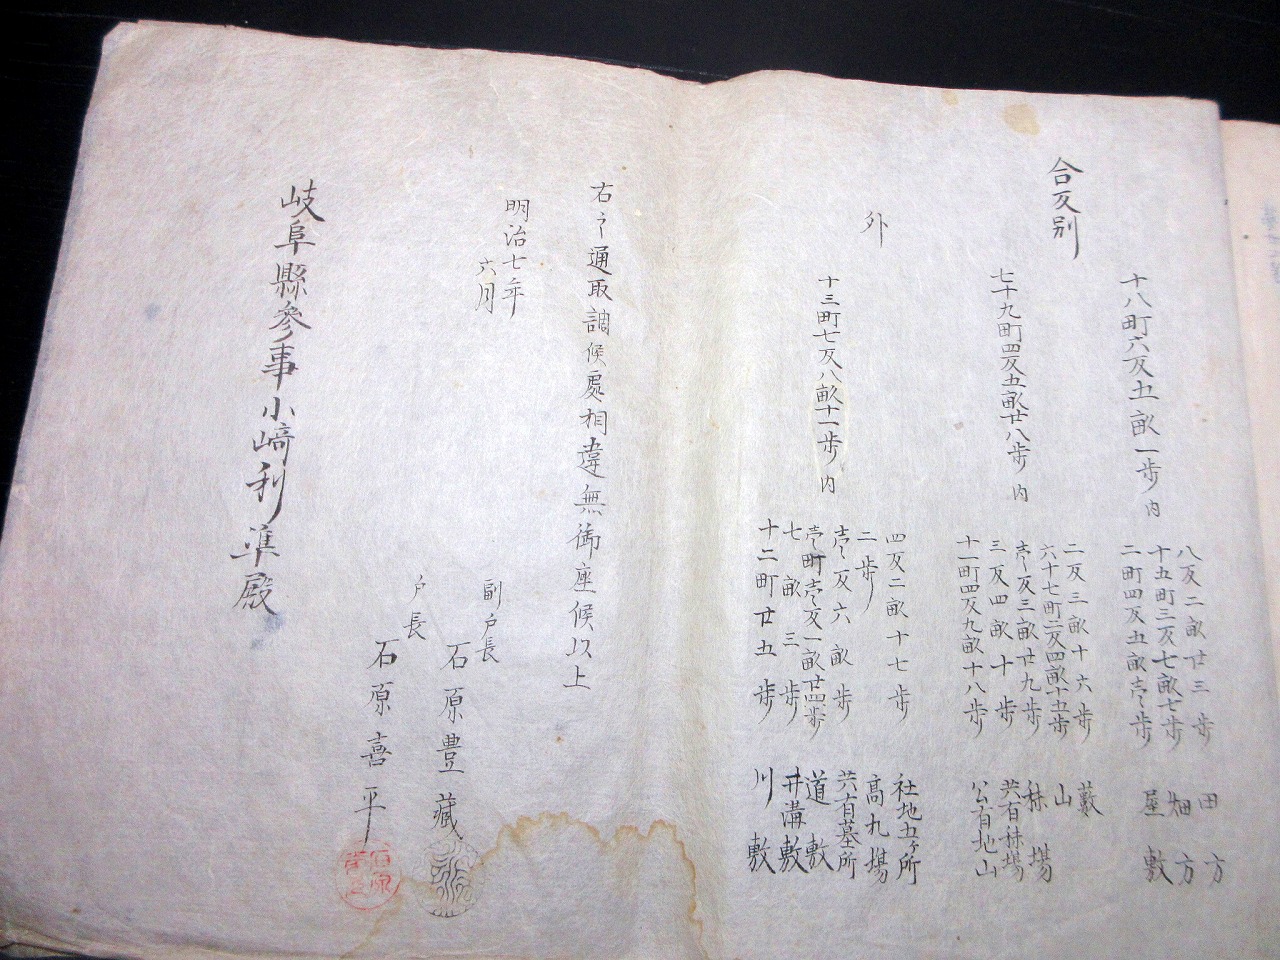 合反別
十八町六反五畝一歩 内
八反二畝廿三歩 田方
十五町三反七畝七歩 畑方
二町四反五畝壱歩 屋敷
七十九町四反五畝廿八歩 内
二反三畝十六歩 藪
六十七町二反四畝十五歩 山
壱反三畝廿九歩 秣場
三反四畝十歩 共有秣場
十一町四反九畝十八歩 公有地山
外
十三町七反八畝十一歩 内
四反二畝十七歩 社地五ヶ所
二歩 高札場
壱反六畝歩 共有墓所
壱町壱反一畝廿四歩 道敷
七畝三歩 井溝敷
十二町廿五歩 川敷
右之通取調候處相違無御座候以上
明治七年
六月
副戸長
石原豊藏
戸長
石原喜平
岐阜縣参事小﨑利準殿